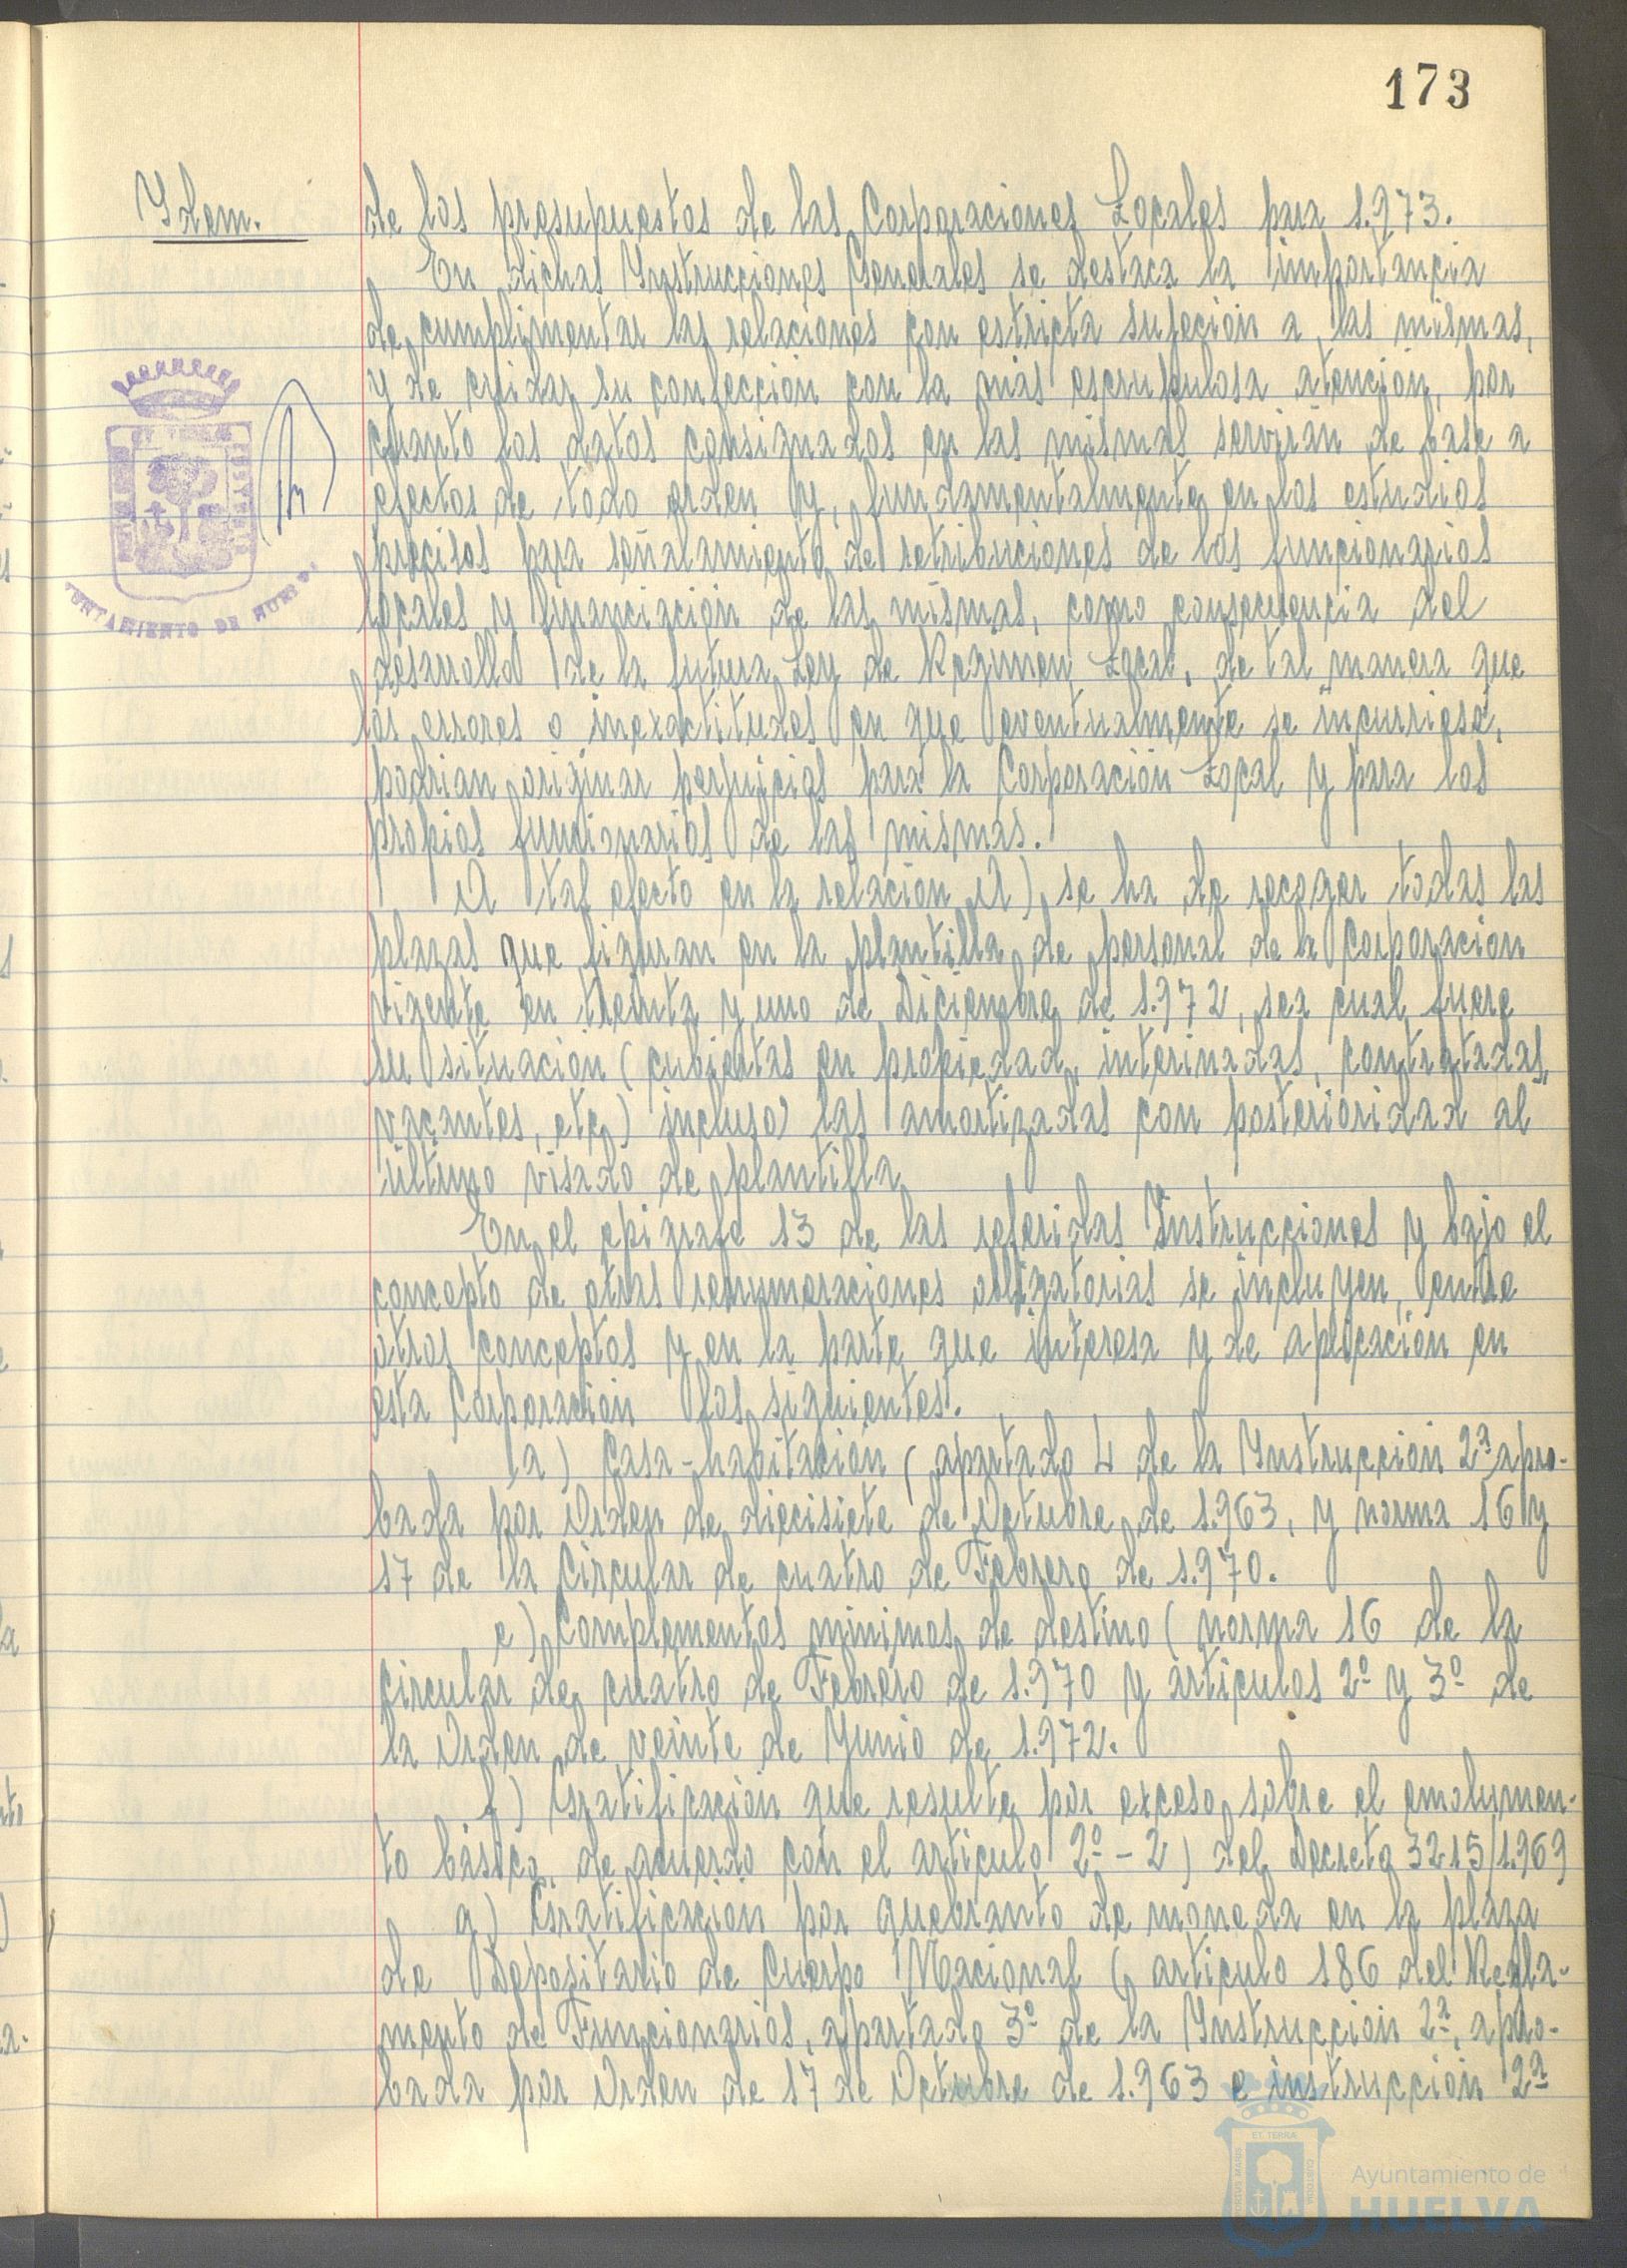 173
Idem.
de los presupuestos de las Corporaciones Locales para 1.973.
En dichas Instrucciones Generales se destaca la importancia
de cumplimentar las relaciones con estricta sujeción a las mismas,
y de cuidar su confección con la más escrupulosa atención, por
cuanto los datos consignados en las mismas servirán de base a
efectos de todo orden y, fundamentalmente en los estudios
precisos para señalamiento de retribuciones de los funcionarios
locales y financiación de las mismas, como consecuencia del
desarrollo de la futura Ley de Regimen Local, de tal manera que
los errores o inexactitudes en que eventualmente se incurriese,
podrian originar perjuicios para la Corporación Local y para los
propios funcionarios de las mismas.
A tal efecto en la relación A) se ha de recoger todas las
plazas que figuran en la plantilla de personal de la Corporación
vigente en treinta y uno de Diciembre de 1.972, sea cual fuere
su situación (cubiertas en propiedad, interinadas, contratadas,
vacantes, etc) incluso las amortizadas con posterioridad al
último visado de plantilla
En el epigrafe 13 de las referidas Instrucciones y bajo el
concepto de otras remuneraciones obligatorias se incluyen, entre
otros conceptos y en la parte que interesa y de aplicación en
esta Corporación los siguientes.
a) Casa-habitación (apartado 4 de la Instrucción 2ª apro-
bada por Orden de diecisiete de Octubre de 1.963, y norma 16 y
17 de la Circular de cuatro de Febrero de 1.970.
e) Complementos minimos de destino (norma 16 de la
Circular de cuatro de Febrero de 1.970 y articulos 2º y 3º de
la Orden de veinte de Junio de 1.972.
f) Gratificación que resulte por exceso sobre el emolumen-
to básico, de acuerdo con el articulo 2º-2) del Decreto 3215/1.969
g) Gratificación por quebranto de moneda en la plaza
de Depositario de Cuerpo Nacional (articulo 186 del Regla-
mento de Funcionarios, apartado 3º de la Instrucción 2ª, apro-
bada por Orden de 17 de Octubre de 1.963 e instrucción 2ª
AYUNTAMIENTO DE HUELVA
Ayuntamiento de
HUELVA